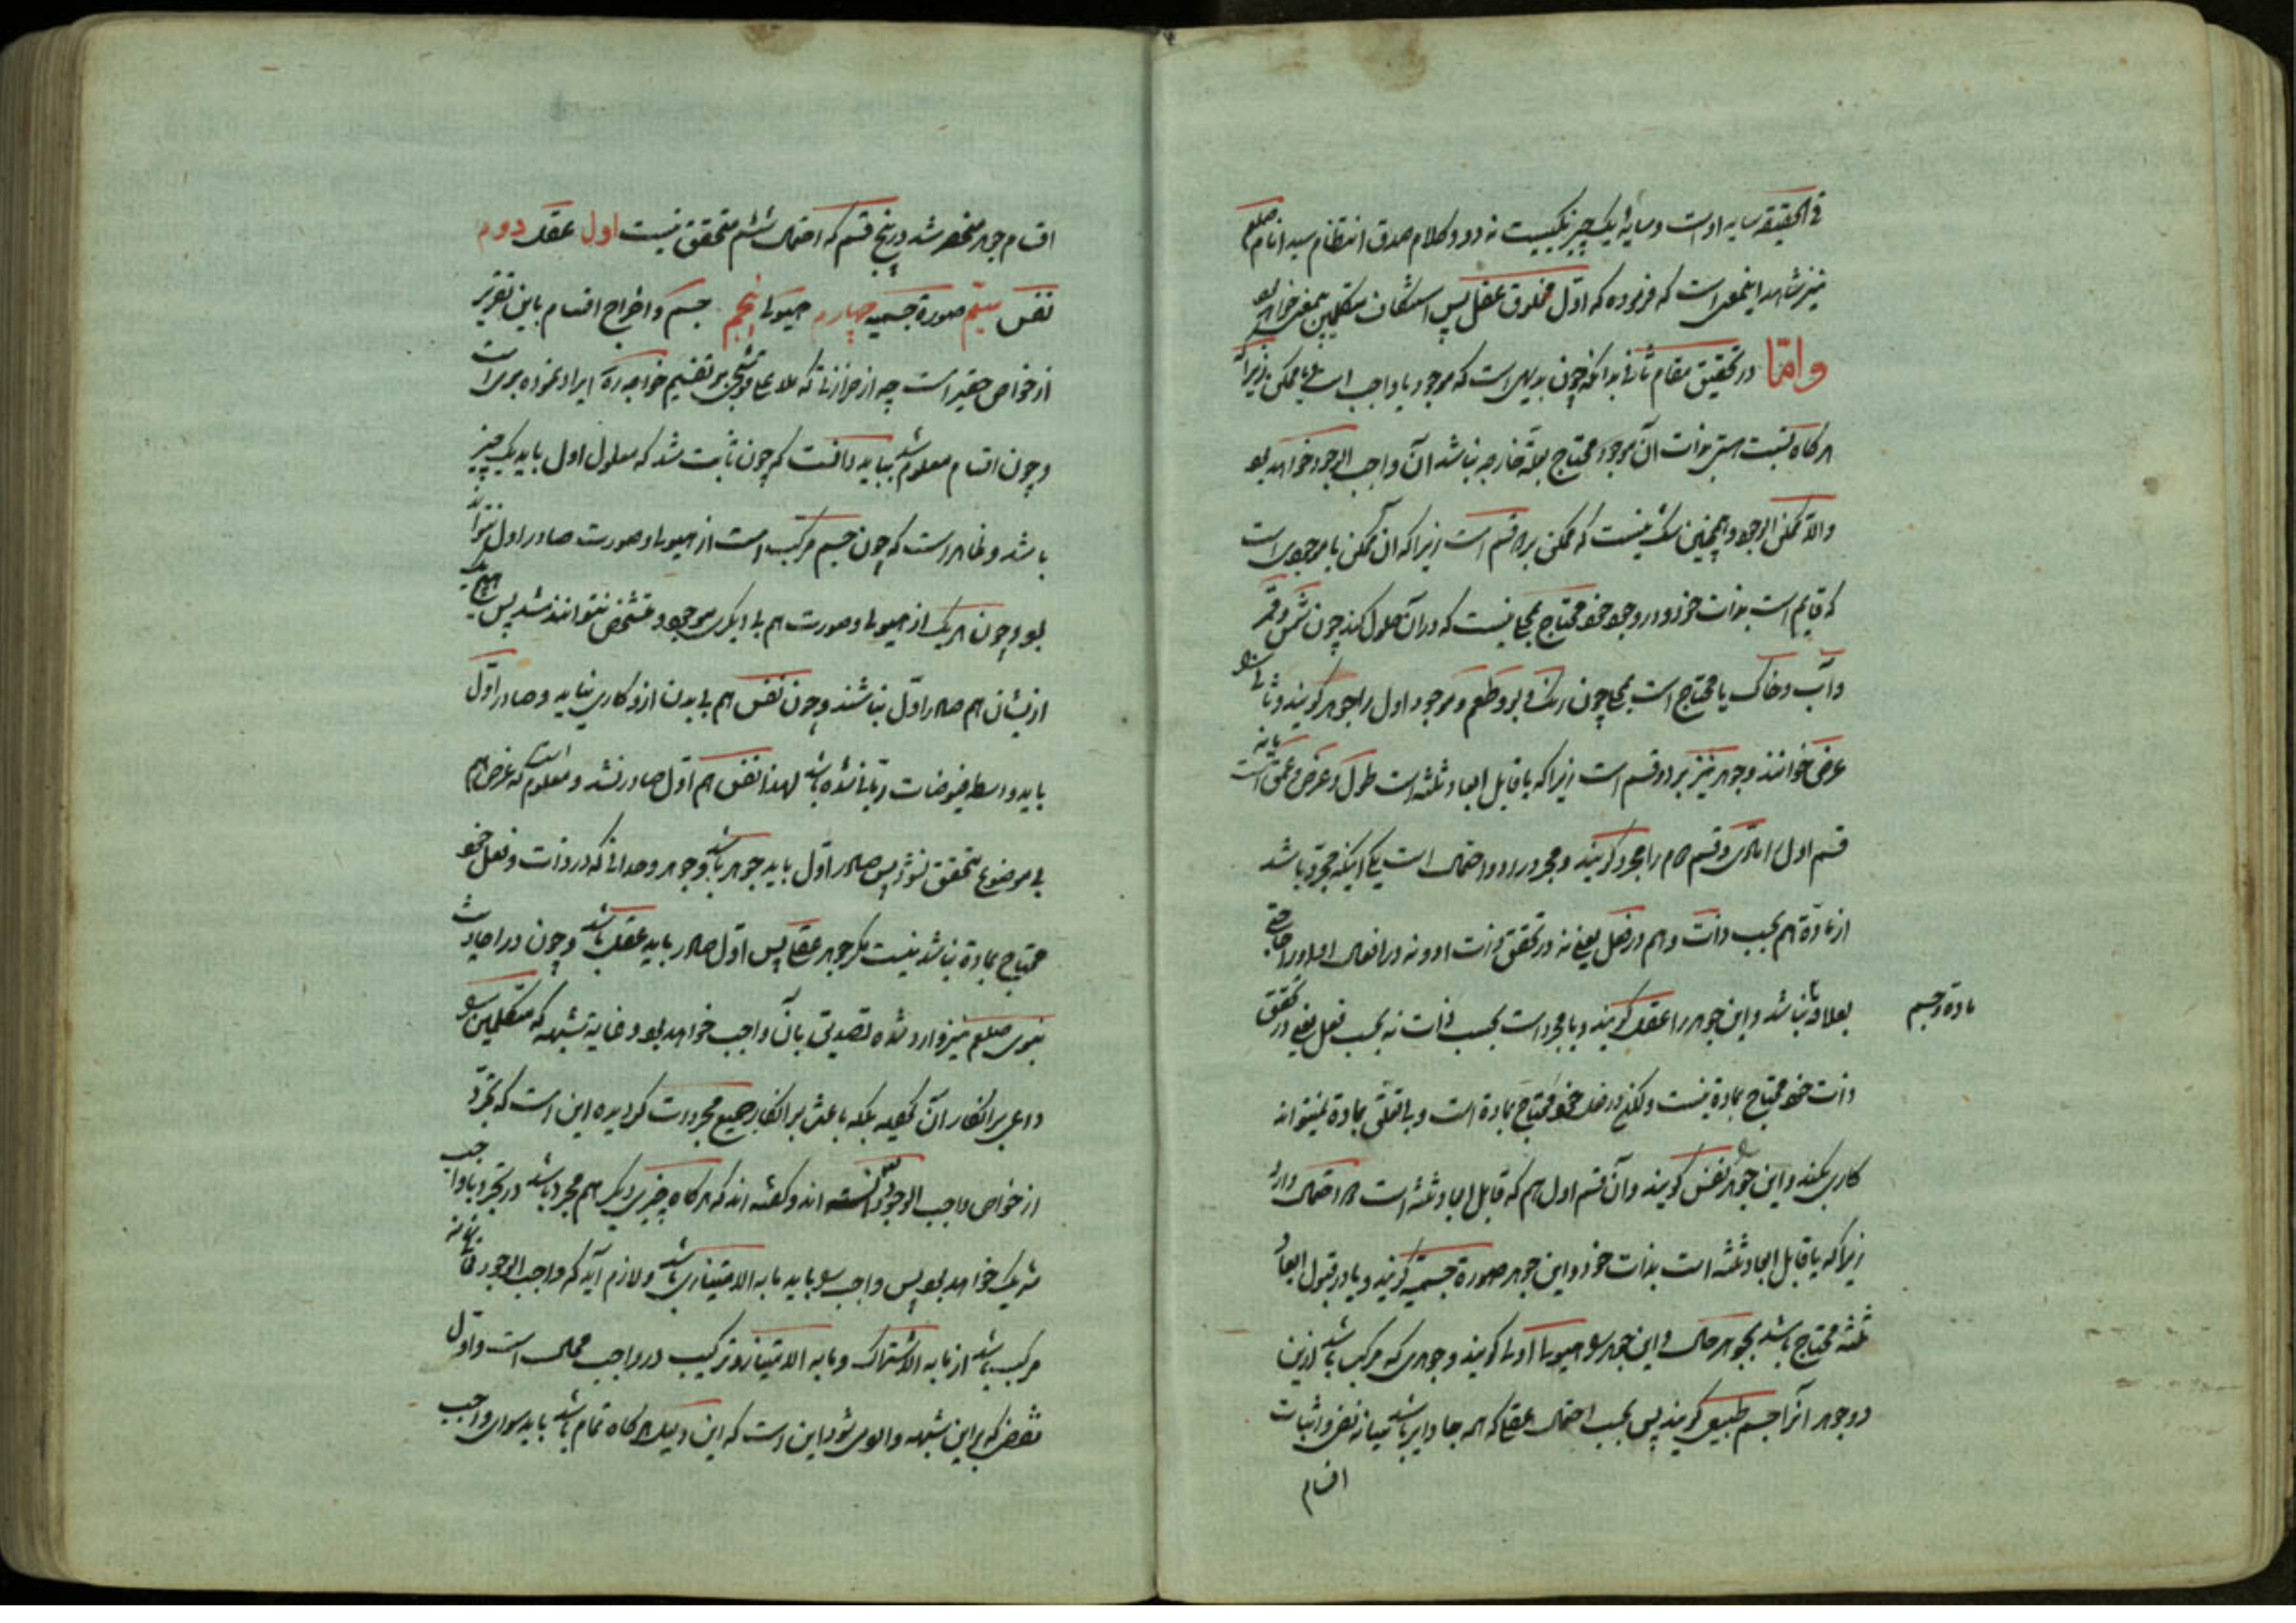 فی الحقیقة سایه اوست و سایهٔ یک چیز یکیست نه دو و کلام صدق انتظام سید انام صلعم
نیز شاهد اینمعنی است که فرموده که اول مخلوق عقل پس متکلمین همین خواهد بود
وامّا در تحقیق مقام ثانی بدانکه چون بدیهی است که موجود یا واجب است یا ممکن زیرا که
هرکاه نسبت هستی بذات آن موجود محتاج بعلة خارجه نباشد آن واجب الوجود خواهد بود
والا ممکن الوجود و همچنین شک نیست که ممکن بر دو قسم است زیرا که آن ممکن یا موجودی است
که قایم است بذات خود و در وجود خود محتاج بمحلی نیست که در آن حلول کند چون شمس و قمر
و آب و خاک یا محتاج است بمحل چون رنک و بو و طعم و موجود اول را جوهر کویند و ثانی را
عرض خوانند و جوهر نیز بر دو قسم است زیرا که یا قابل ابعاد ثلثه است طول و عرض و عمق یا نه است
قسم اول را مادی و قسم دوم را مجرد کویند و مجرد را دو احتمال است یکی اینکه مجرد باشد
از ماده هم بحسب ذات و هم در فعل یعنی نه در تحقق ذات او و نه در افعال او او را حاجتی
بعلاقه نباشد و این جوهر را عقل کویند و یا مجرد است بحسب ذات نه بحسب فعل یعنی در تحقق
مادة و جسم
ذات خود محتاج بمادة نیست ولکن در فعل خود محتاج بمادة است و بی تعلق بمادة نمیتواند
کاری بکند و این جوهر را نفس کویند و آن قسم اول هم که قابل ابعاد ثلثه است دو احتمال دارد
زیرا که یا قابل ابعاد ثلثه است بذات خود و این جوهر صورة جسمیه کویند و یا در قبول ابعاد
ثلثه محتاج باشد بجوهر حال و این جوهر را هیولی اولی کویند و جوهری که مرکب باشد ازین
دو جوهر آنرا جسم طبیعی کویند پس بحسب احتمال عقلی که همه جا دایر باشد میانه نفی و اثبات
اقسام
اقسام جوهر منحصر شد در پنج قسم که احتمال ششم متحقق نیست اول عقل دوم
نفس سیّم صورة جسمیه چهارم هیولی پنجم جسم و اخراج اقسام باین تقریر
از خواص حقیر است چه از حزازتی که ملا علی قوشجی بر تقسیم خواجه ره ایراد نموده بری است
و چون اقسام معلوم شد بباید دانست که چون ثابت شد که معلول اول باید یک چیز
باشد و ظاهر است که چون جسم مرکب است از هیولی و صورت صادر اول نتواند
بود و چون هر یک از هیولی و صورت هم بی دیکری موجود و متشخص نتوانند شد پس هیچ یک
ازیشان هم صادر اوّل نباشند و چون نفس هم بی بدن ازو کاری نیاید و صادر اوّل
باید واسطه فیوضات ربانی شده باشد لهذا نفس هم اوّل صادر نشد و معلوم است که عرض هم
بی موضوع متحقق نشود پس صادر اوّل باید جوهر باشد و جوهر وحدانی که در ذات و فعل خود
محتاج بمادة نباشد نیست مکر جوهر عقلی پس اوّل صادر باید عقل باشد و چون در احادیث
نبوی صلعم نیز وارد شده تصدیق بآن واجب خواهد بود و غایة شبهه که متکلمین را
داعی بر انکار آن کلیه بلکه باعث بر انکار جمیع مجردات کردیده این است که تجرّد
از خواص واجب الوجود دانسته اند و کفته اند که هرکاه چیزی دیکر هم مجرد باشد در تجرد با واجب
شریک خواهد بود پس واجب را باید مابه الامتیازی باشد و لازم آید که واجب الوجود
مرکب باشد از مابه الاشتراک و مابه الامتیاز و ترکیب در واجب محال است و اوّل
نقضی که برین شبهه وارد میشود این است که این دلیل هرکاه تمام باشد باید سوای واجب